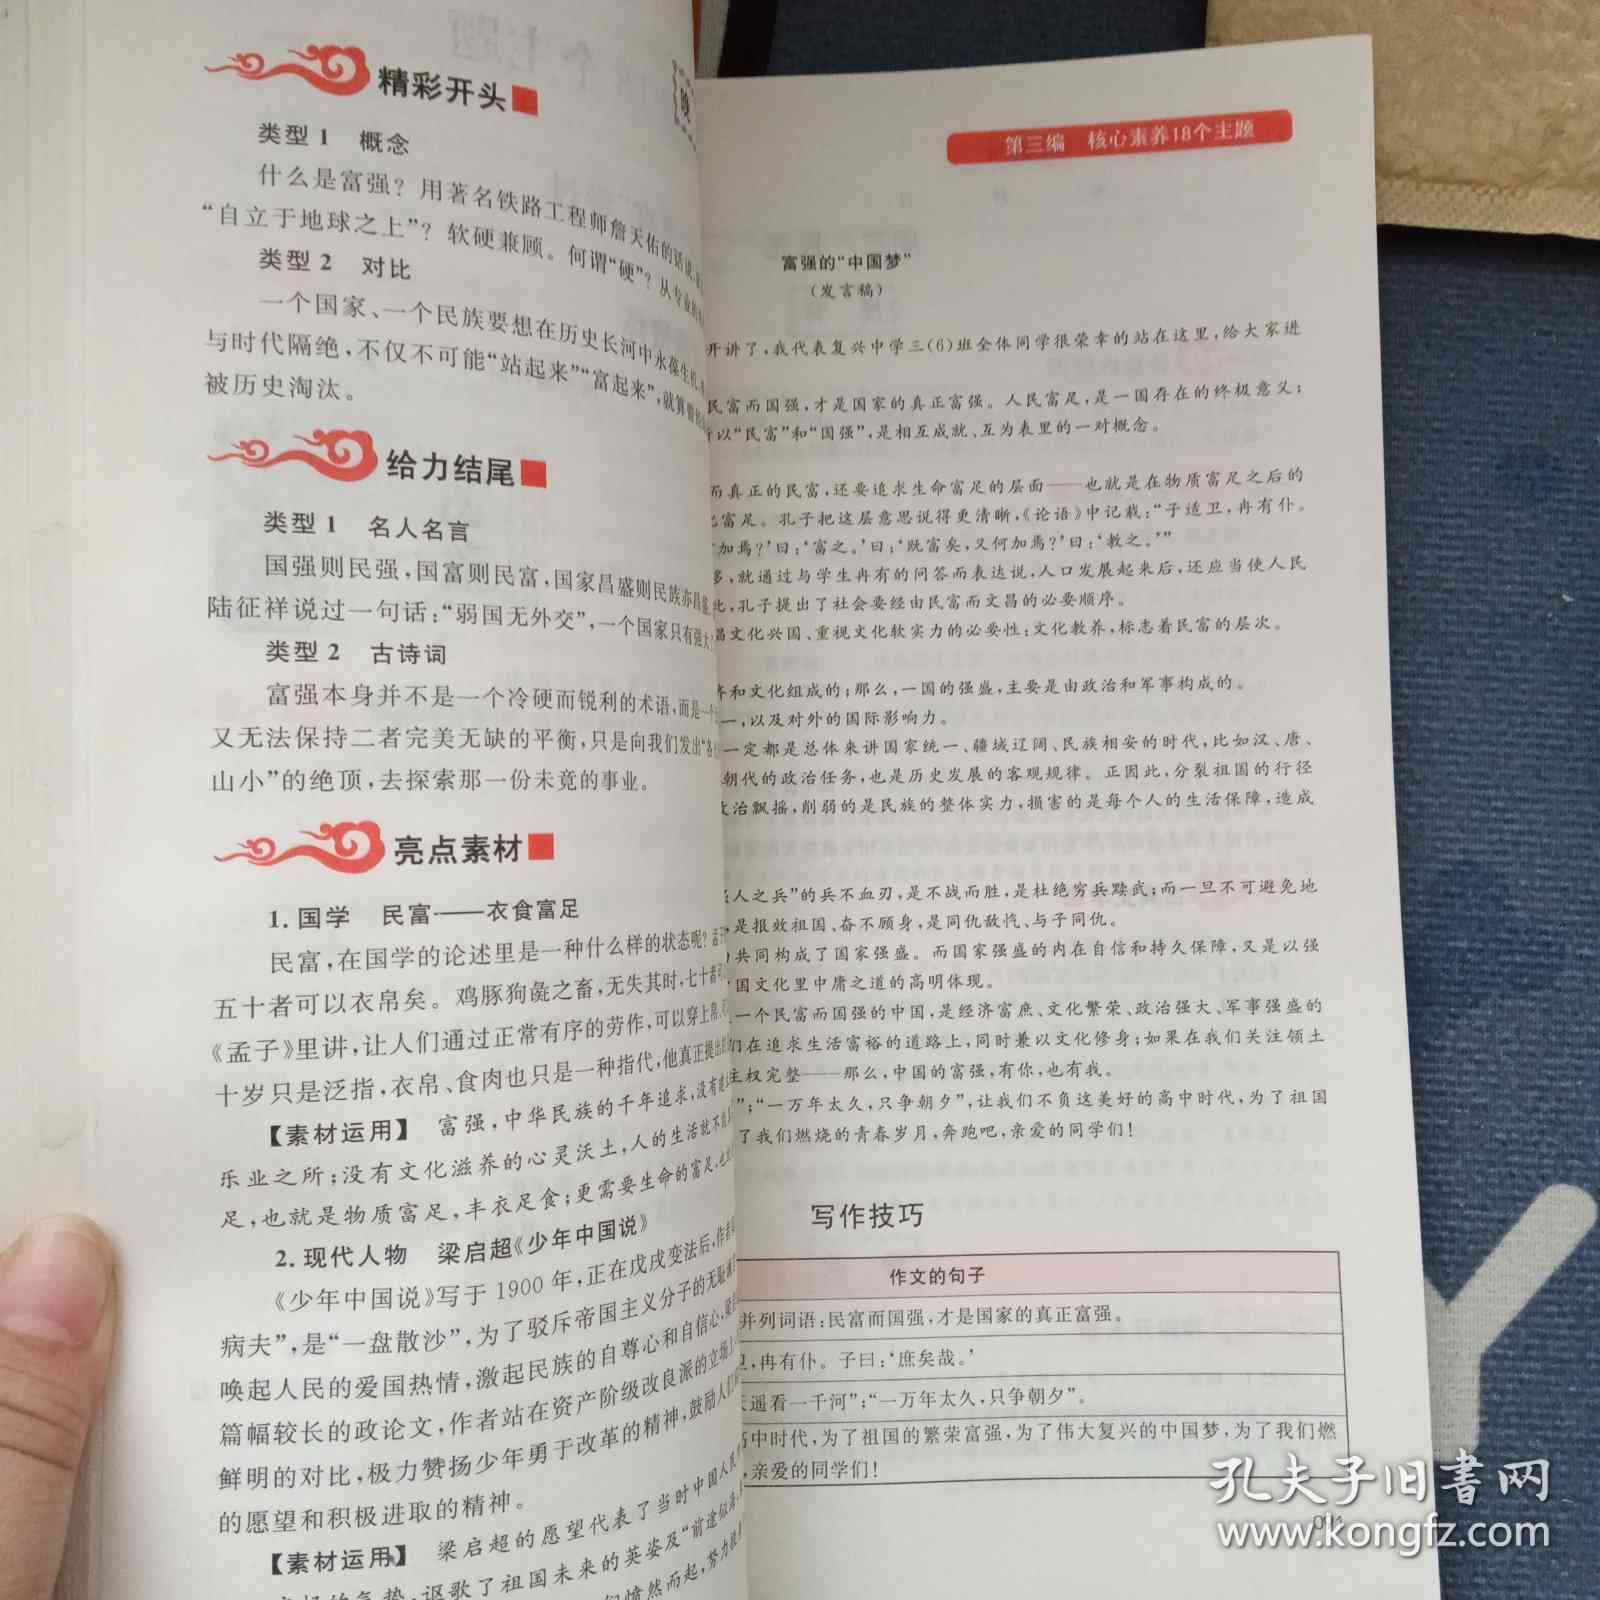 精彩开头
类型1 概念
什么是富强？用著名铁路工程师詹天佑的话说，
“自立于地球之上”？软硬兼顾。何谓“硬”？从专业
类型2 对比
一个国家、一个民族要想在历史长河中永葆生机，
与时代隔绝，不仅不可能“站起来”“富起来”，就算
被历史淘汰。
给力结尾
类型1 名人名言
国强则民强，国富则民富，国家昌盛则民族亦昌盛
陆征祥说过一句话：“弱国无外交”，一个国家只有强大
类型2 古诗词
富强本身并不是一个冷硬而锐利的术语，而是一个
又无法保持二者完美无缺的平衡，只是向我们发出“
山小”的绝顶，去探索那一份未竟的事业。
亮点素材
1.国学 民富——衣食富足
民富，在国学的论述里是一种什么样的状态呢？孟子
五十者可以衣帛矣。鸡豚狗彘之畜，无失其时，七十者可
《孟子》里讲，让人们通过正常有序的劳作，可以穿上帛
十岁只是泛指，衣帛、食肉也只是一种指代，他真正提出
【素材运用】 富强，中华民族的千年追求，没有
乐业之所；没有文化滋养的心灵沃土，人的生活就不
足，也就是物质富足，丰衣足食；更需要生命的富足，也
2.现代人物 梁启超《少年中国说》
《少年中国说》写于1900年，正在戊戌变法后，作者
病夫”，是“一盘散沙”，为了驳斥帝国主义分子的无耻
唤起人民的爱国热情，激起民族的自尊心和自信心，
篇幅较长的政论文，作者站在资产阶级改良派的立场上，
鲜明的对比，极力赞扬少年勇于改革的精神，鼓励人们
的愿望和积极进取的精神。
【素材运用】 梁启超的愿望代表了当时中国人民
的气势，讴歌了祖国未来的英姿及“前途似海，
愤然而起，努力
第三编 核心素养18个主题
富强的“中国梦”
（发言稿）
开讲了，我代表复兴中学三（6）班全体同学很荣幸的站在这里，给大家进
民富而国强，才是国家的真正富强。人民富足，是一国存在的终极意义；
以“民富”和“国强”，是相互成就、互为表里的一对概念。
而真正的民富，还要追求生命富足的层面——也就是在物质富足之后的
富足。孔子把这层意思说得更清晰，《论语》中记载：“子适卫，冉有仆。
加焉？’曰：‘富之。’曰：‘既富矣，又何加焉？’曰：‘教之。’”
多，就通过与学生冉有的问答而表达说，人口发展起来后，还应当使人民
此，孔子提出了社会要经由民富而文昌的必要顺序。
昌文化兴国、重视文化软实力的必要性：文化教养，标志着民富的层次。
济和文化组成的；那么，一国的强盛，主要是由政治和军事构成的。
一，以及对外的国际影响力。
一定都是总体来讲国家统一、疆域辽阔、民族相安的时代，比如汉、唐、
朝代的政治任务，也是历史发展的客观规律。正因此，分裂祖国的行径
政治飘摇，削弱的是民族的整体实力，损害的是每个人的生活保障，造成
人之兵”的兵不血刃，是不战而胜，是杜绝穷兵黩武；而一旦不可避免地
是报效祖国、奋不顾身，是同仇敌忾、与子同仇。
共同构成了国家强盛。而国家强盛的内在自信和持久保障，又是以强
国文化里中庸之道的高明体现。
一个民富而国强的中国，是经济富庶、文化繁荣、政治强大、军事强盛的
们在追求生活富裕的道路上，同时兼以文化修身；如果在我们关注领土
主权完整——那么，中国的富强，有你，也有我。
”；“一万年太久，只争朝夕”，让我们不负这美好的高中时代，为了祖国
了我们燃烧的青春岁月，奔跑吧，亲爱的同学们！
写作技巧
作文的句子
并列词语：民富而国强，才是国家的真正富强。
卫，冉有仆。子曰：‘庶矣哉。’
遥看一千河”；“一万年太久，只争朝夕”。
中时代，为了祖国的繁荣富强，为了伟大复兴的中国梦，为了我们燃
，亲爱的同学们！
孔夫子旧书网
www.kongfz.com